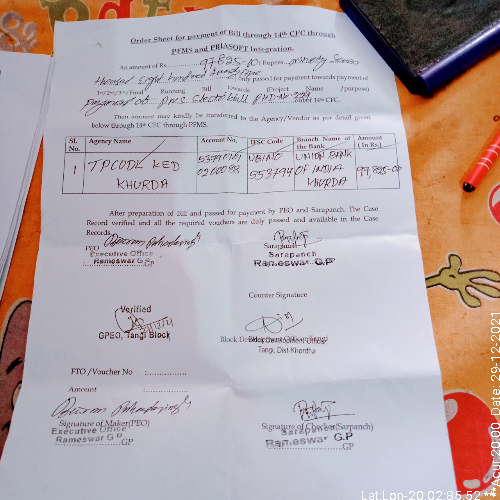 Order Sheet for payment of Bill through 14th CFC through
PFMS and PRIASOFT Integration.
An amount of Rs. 97825-00 (Rupees Ninety Seven
Thousand Eight hundred Twenty Five only passed for payment towards payment of
1st/2nd/3rd/Final Running Bill towards (Project Name /purpose)
payment of under 14th CFC.
Then amount may kindly be transferred to the Agency/Vendor as per detail given
below through 14th CFC through PFMS.
Sl. No. Agency Name Account No. IFSC Code Branch Name of the Bank Amount (In Rs.)
1 TPCODL KED KHURDA UBINO 553794 UNION BANK OF INDIA KHURDA 97,825-00
After preparation of Bill and passed for payment by PEO and Sarapanch. The Case
Record verified and all the required vouchers are duly passed and available in the Case
Records.
PEO
Executive Office
Rameswar G.P
Sarapanch
Sarapanch
Rameswar G.P
Counter Signature
Verified
GPEO, Tangi Block
Block Development Officer
Tangi, Dist-Khordha
FTO /Voucher No :
Amount :
Signature of Maker(PEO)
Executive Office
Rameswar G.P
Signature of Checker(Sarpanch)
Sarapanch
Rameswar G.P
Lat.Lon-20.02:85,52
Acu: 20.00 Date: 29-12-2021